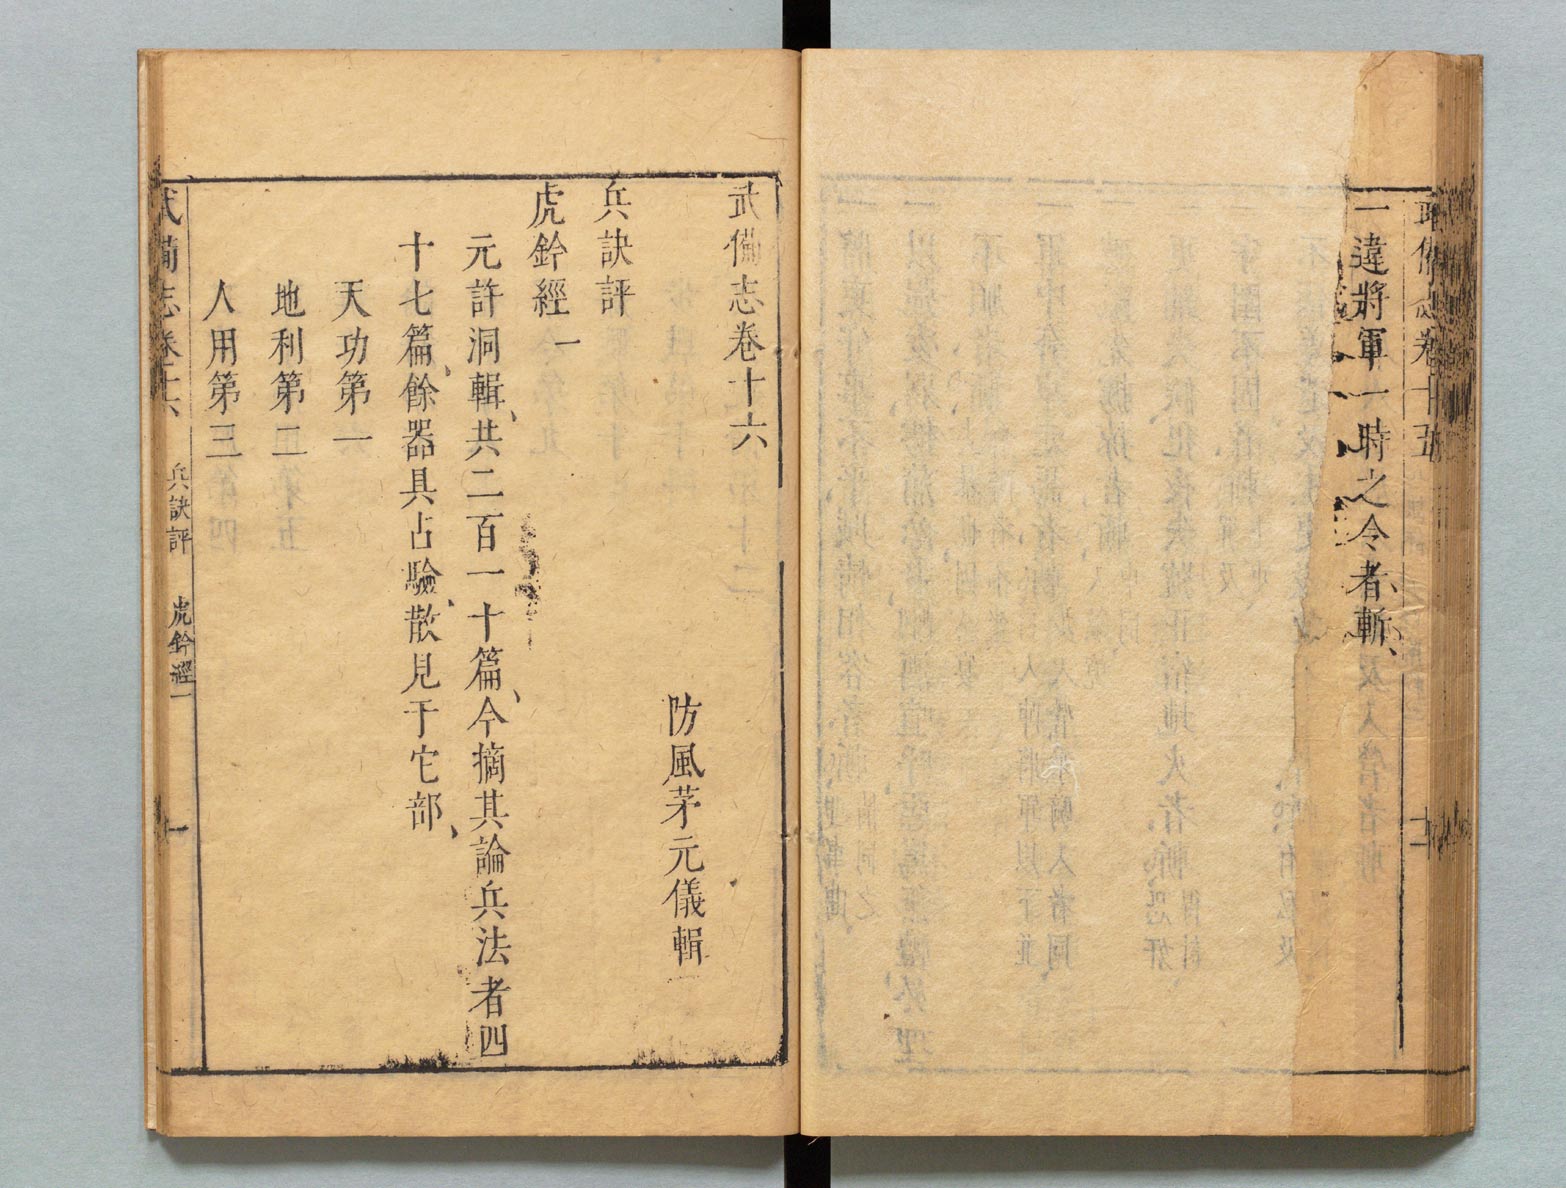 武備志卷十五
一違將軍一時之令者斬、
武備志卷十六
防風茅元儀輯
兵訣評
虎鈐經一
元許洞輯、共二百一十篇、今摘其論兵法者四
十七篇、餘器具占驗、散見于它部、
天功第一
地利第二
人用第三
武備志卷十六 兵訣評 虎鈐經一 一